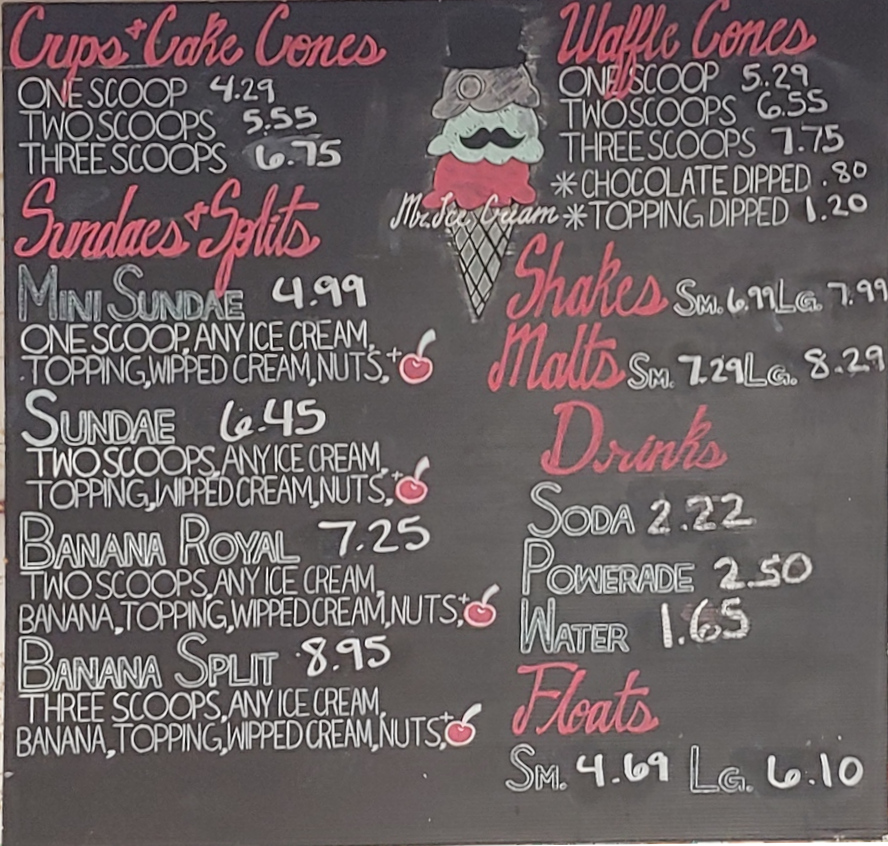 Cups + Cake Cones
ONE SCOOP 4.29
TWO SCOOPS 5.55
THREE SCOOPS 6.75
Sundaes + Splits
MINI SUNDAE 4.99
ONE SCOOP, ANY ICE CREAM,
TOPPING, WIPPED CREAM, NUTS, +
SUNDAE 6.45
TWO SCOOPS, ANY ICE CREAM,
TOPPING, WIPPED CREAM, NUTS, +
BANANA ROYAL 7.25
TWO SCOOPS, ANY ICE CREAM,
BANANA, TOPPING, WIPPED CREAM, NUTS, +
BANANA SPLIT 8.95
THREE SCOOPS, ANY ICE CREAM,
BANANA, TOPPING, WIPPED CREAM, NUTS, +
Mr. Ice Cream
Waffle Cones
ONE SCOOP 5.29
TWO SCOOPS 6.55
THREE SCOOPS 7.75
* CHOCOLATE DIPPED .80
* TOPPING DIPPED 1.20
Shakes SM. 6.99 LG. 7.99
Malts SM. 7.29 LG. 8.29
Drinks
SODA 2.22
POWERADE 2.50
WATER 1.65
Floats
SM. 4.69 LG. 6.10